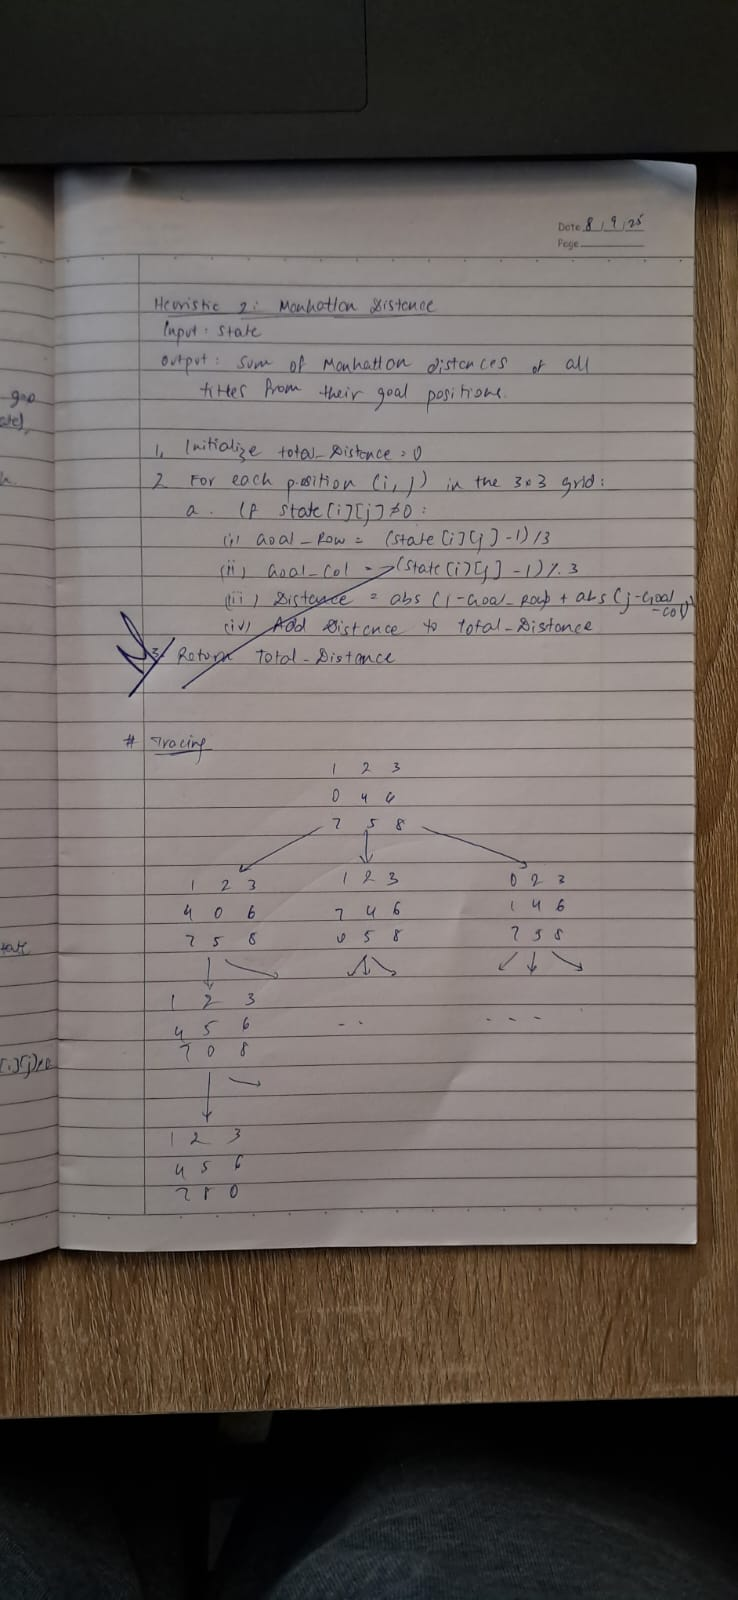 Date 8/9/25
Page
Heuristic 2: Manhatton Distance
Input: State
Output: Sum of Manhatton distances of all
titles from their goal positions.
1. Initialize total_Distance = 0
2 For each position (i,j) in the 3x3 grid:
a. If state[i][j] ≠ 0:
(i) Goal_Row = (state[i][j] - 1) / 3
(ii) Goal_Col = (state[i][j] - 1) % 3
(iii) Distance = abs (i - Goal_Row) + abs (j - Goal
- col)
(iv) Add Distance to Total_Distance
3. Return Total_Distance
# Tracing
1 2 3
0 4 6
7 5 8
1 2 3 1 2 3 0 2 3
4 0 6 7 4 6 1 4 6
7 5 8 0 5 8 7 5 8
1 2 3
4 5 6 -- ----
7 0 8
1 2 3
4 5 6
7 8 0